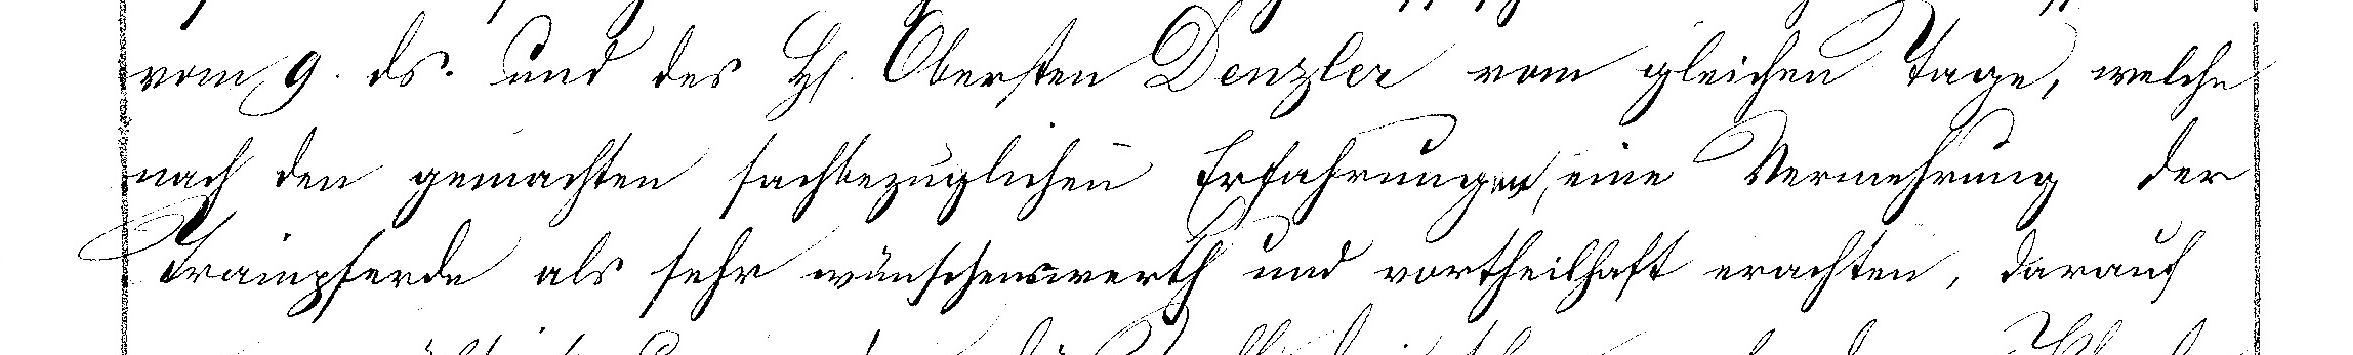 vom 9. ds. und des H. Obersten Denzler vom gleichen Tage, welche
nach den gemachten sachbezüglichen Erfahrungen, eine Vermehrung der
Trainpferde als sehr wünschenswerth und vortheilhaft erachten, darauf